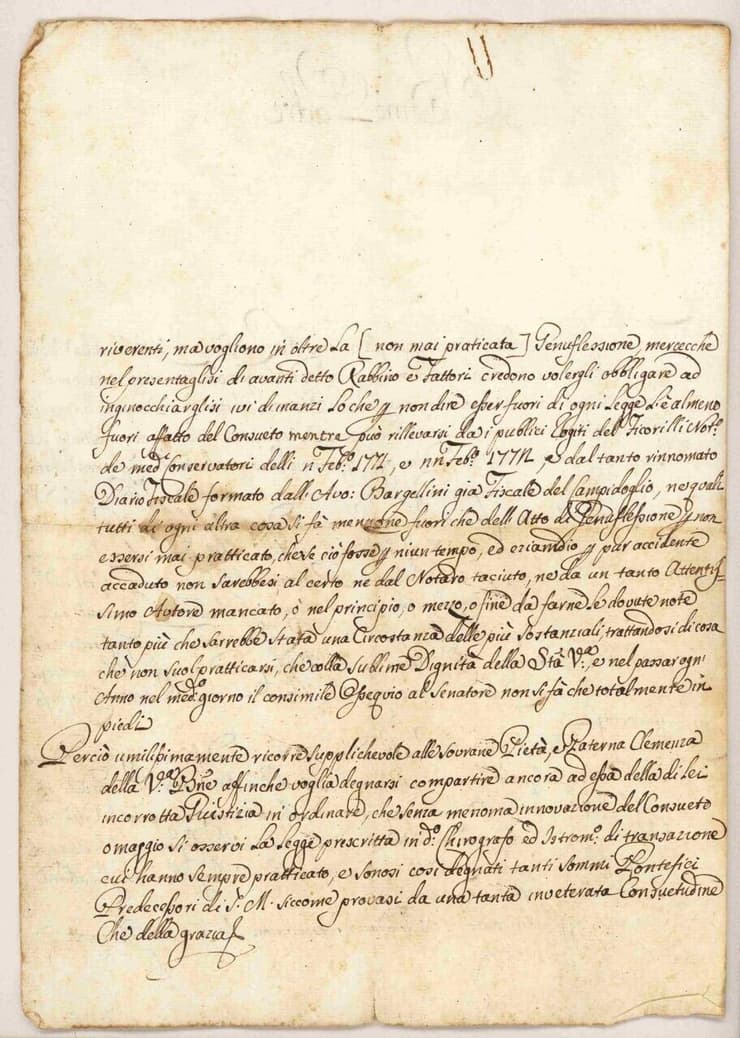 riverenti, ma vogliono in oltre La [non mai praticata] Genuflessione, mercecche
nel presentaglisi di avanti detto Rabbino e Fattori credono volergli obbligare ad
inginocchiarglisi ivi dinanzi Lo che non dire esser fuori di ogni Legge si è almeno
fuori affatto del Consueto mentre può rillevarsi da i publici Rogiti del Ficorilli Not.º
de med.i Conservatori delli Feb.º e Feb.º e dal tanto rinnomato
Diario Fiscale formato dall: Avo: Bargellini già Fiscale del Campidoglio, ne quali
tutti di ogni altra cosa si fà menzione fuori che dell Atto di Genuflessione non
essersi mai pratticato, che se ciò fosse niun tempo, ed eziamdio pur accidente
accaduto non sarebbesi al certo ne dal Notaro taciuto, ne da un tanto Attentis-
simo Autore mancato, ò nel principio, o mezzo, o fine da farne le dovute note
tanto più che sarrebbe stata una Circostanza delle più sostanziali, trattandosi di cosa
che non suol pratticarsi, che colla sublime Dignità della Stà V.ª, e nel passar ogn'
Anno nel med.º giorno il consimile Ossequio al Senatore non si fà che totalmente in
piedi
Perciò umilissimamente ricorre supplichevole alle sovrane Pietà, e Paterna Clemenza
della V.ª B.ne affinche voglia degnarsi compartire ancora ad essa della di Lei
incorrotta Giustizia in ordinare, che senza menoma innovazione del Consueto
omaggio si osservi La Legge prescritta in d.º Chirografo ed Istrom.º di transazione
cui hanno sempre pratticato, e sonosi cosi degnati tanti sommi Pontefici
Predecessori di S. M. siccome provasi da una tanta inveterata Consuetudine
Che della grazia